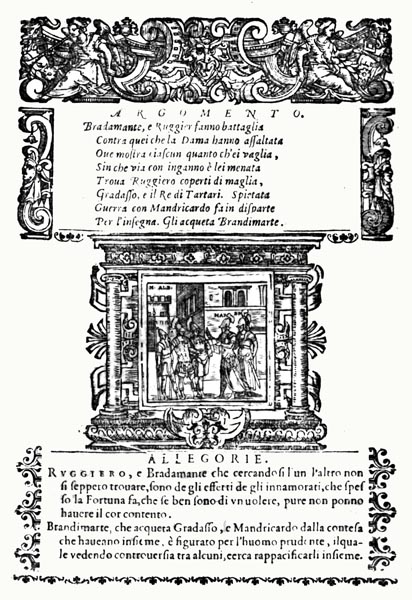 ARGOMENTO.
Bradamante, e Ruggier fanno battaglia
Contra quei che la Dama hanno assaltata
Oue mostra ciascun quanto ch'ei vaglia,
Sin che via con inganno è lei menata
Troua Ruggiero coperti di maglia,
Gradasso, e il Re di Tartari. Spietata
Guerra con Mandricardo fa in disparte
Per l'insegna. Gli acqueta Brandimarte.
ALLEGORIE.
RVGGIERO, e Bradamante che cercandosi l'un l'altro non
si seppero trouare, sono de gli effetti de gli innamorati, che spes
so la Fortuna fa, che se ben sono di vn uolere, pure non ponno
hauere il cor contento.
Brandimarte, che acqueta Gradasso, e Mandricardo dalla contesa
che haueano insieme, è figurato per l'huomo prudente, ilqua-
le vedendo controuersia tra alcuni, cerca rappacificarli insieme.